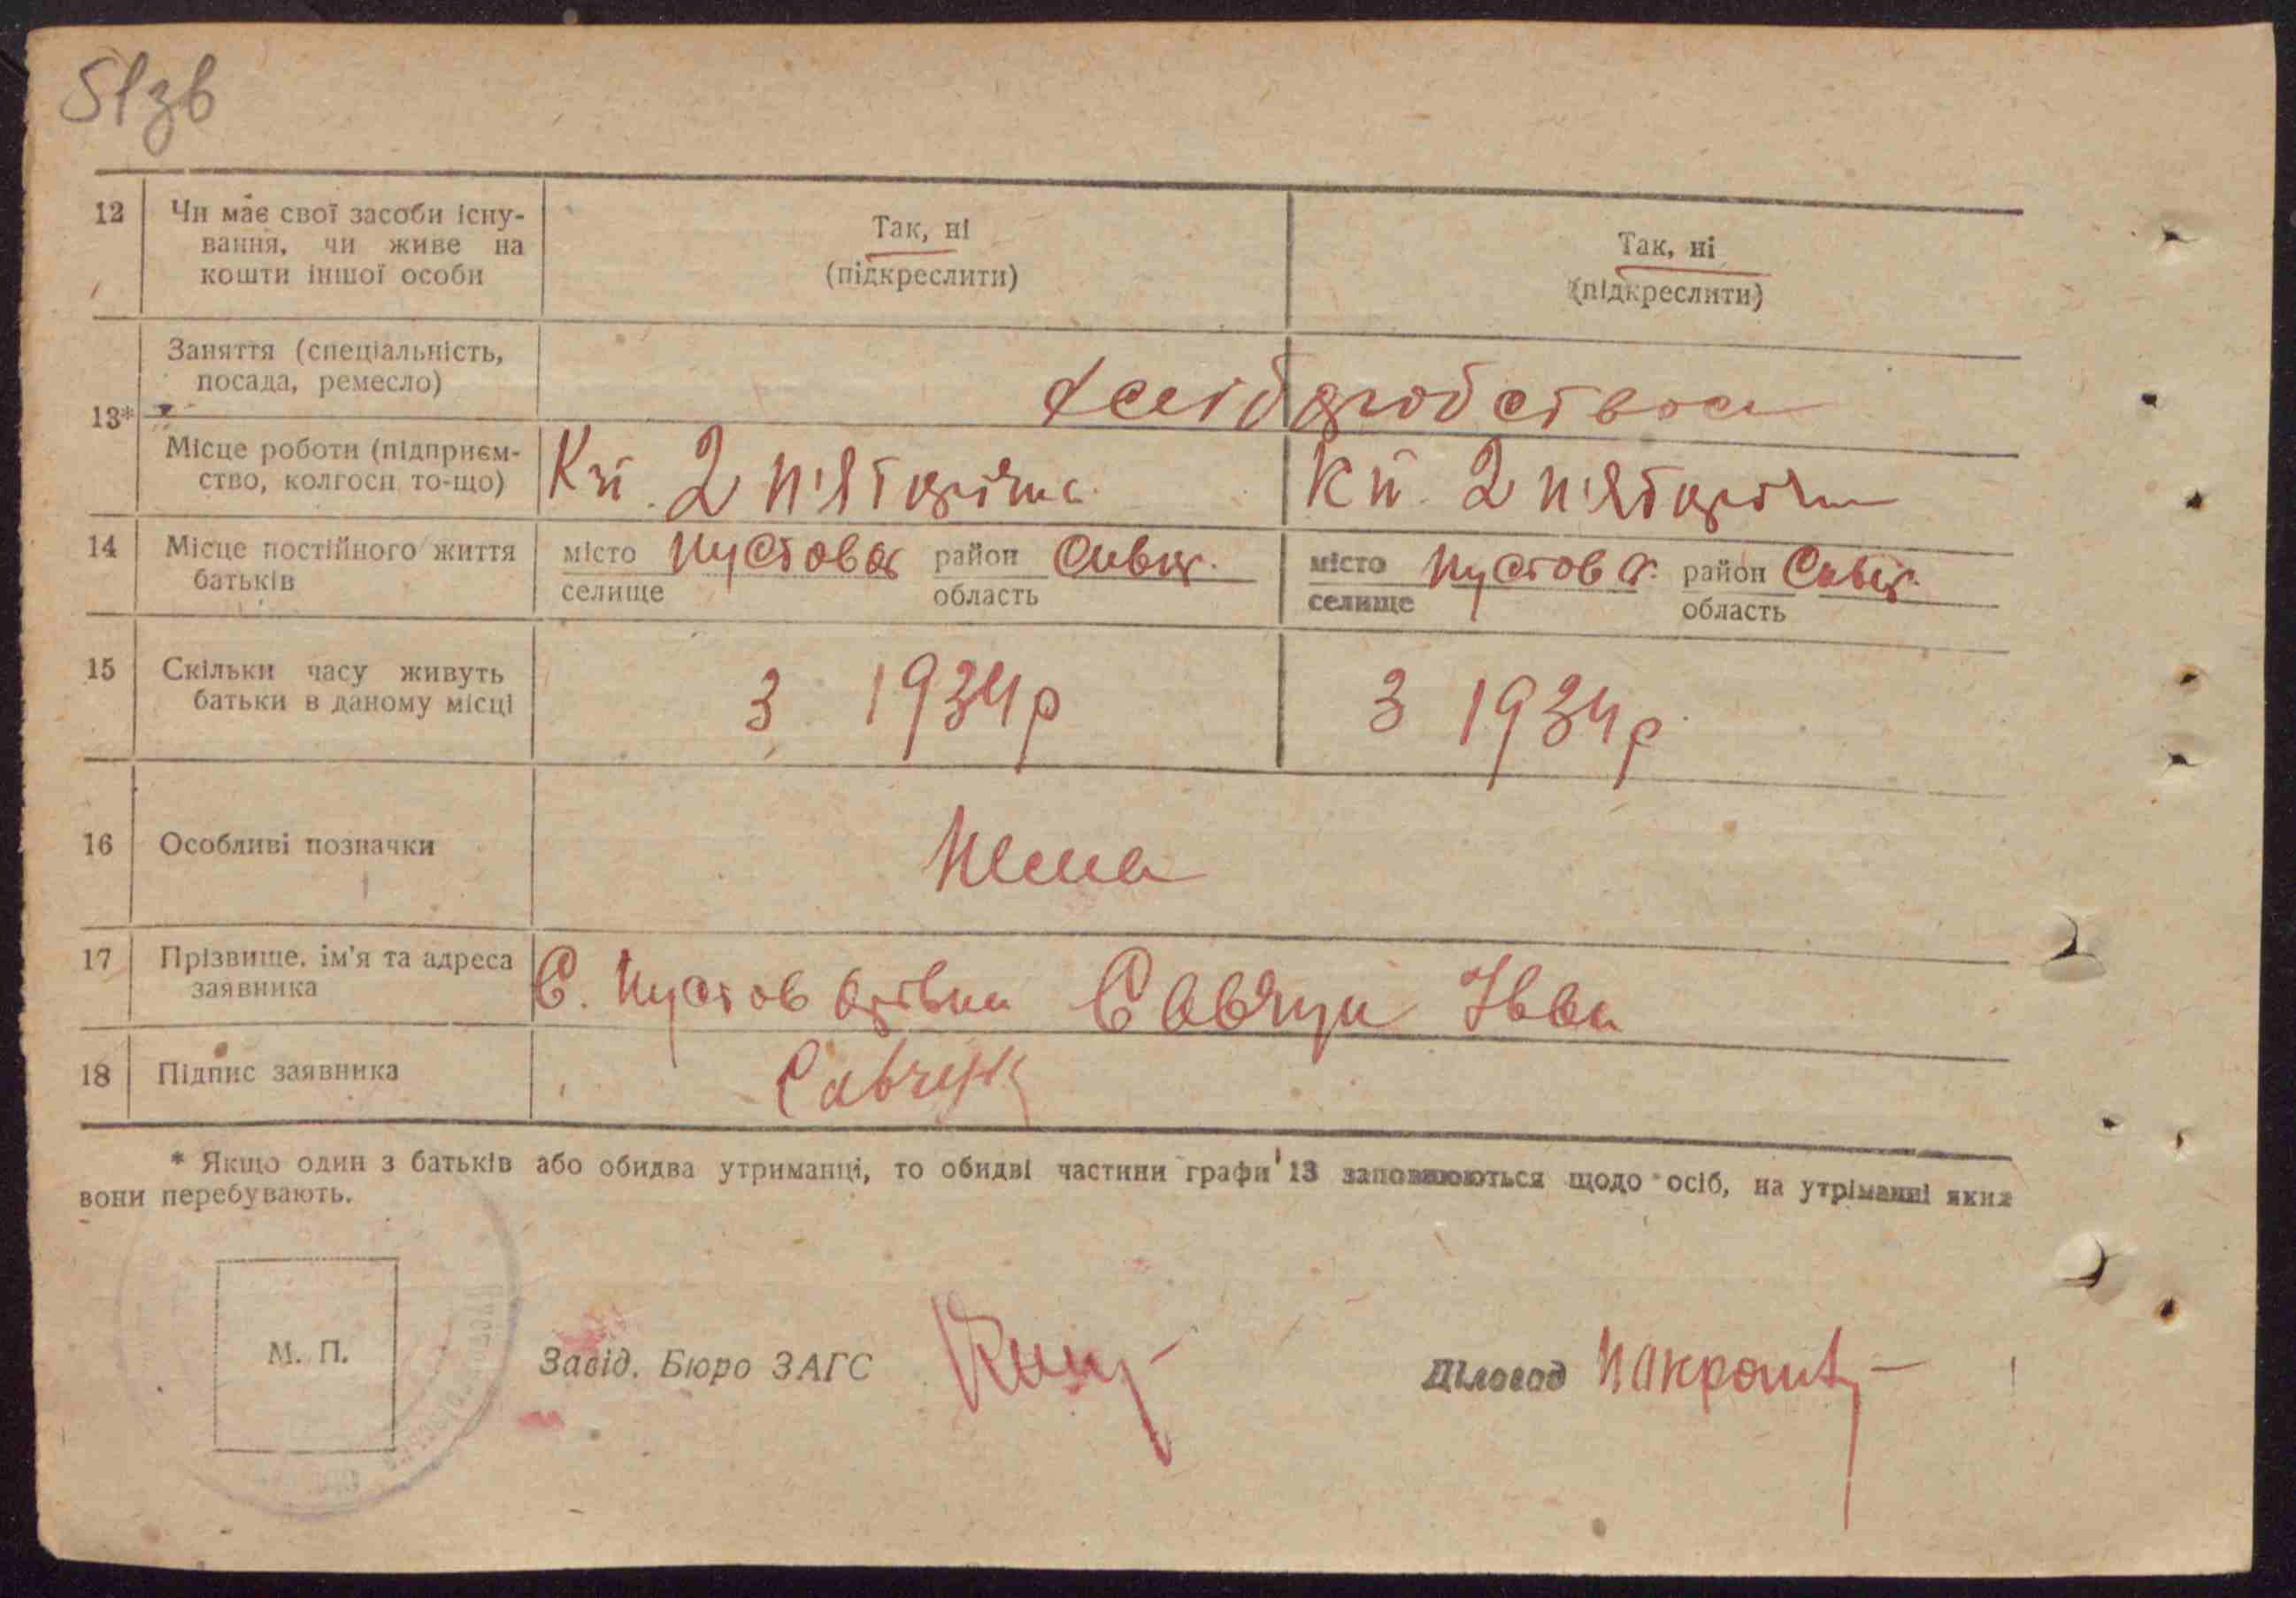 51зв
12 Чи має свої засоби існу-
вання, чи живе на
кошти іншої особи
Так, ні
(підкреслити)
Так, ні
(підкреслити)
13*
Заняття (спеціальність,
посада, ремесло)
Місце роботи (підприєм-
ство, колгосп то-що)
Кп. 2 п'ятирічка
Кп. 2 п'ятиріч
14 Місце постійного життя
батьків
місто Пустова район Сиваш.
селище область
місто Пустов район
селище область
15 Скільки часу живуть
батьки в даному місці
З 1934р
З 1934р
16 Особливі позначки
Нема
17 Прізвище, ім'я та адреса
заявника
С. Пустов Савчук Іван
18 Підпис заявника
Савчук
* Якщо один з батьків або обидва утриманці, то обидві частини графи 13 заповнюються щодо осіб, на утріманні яких
вони перебувають.
М. П.
Завід. Бюро ЗАГС
Діловод